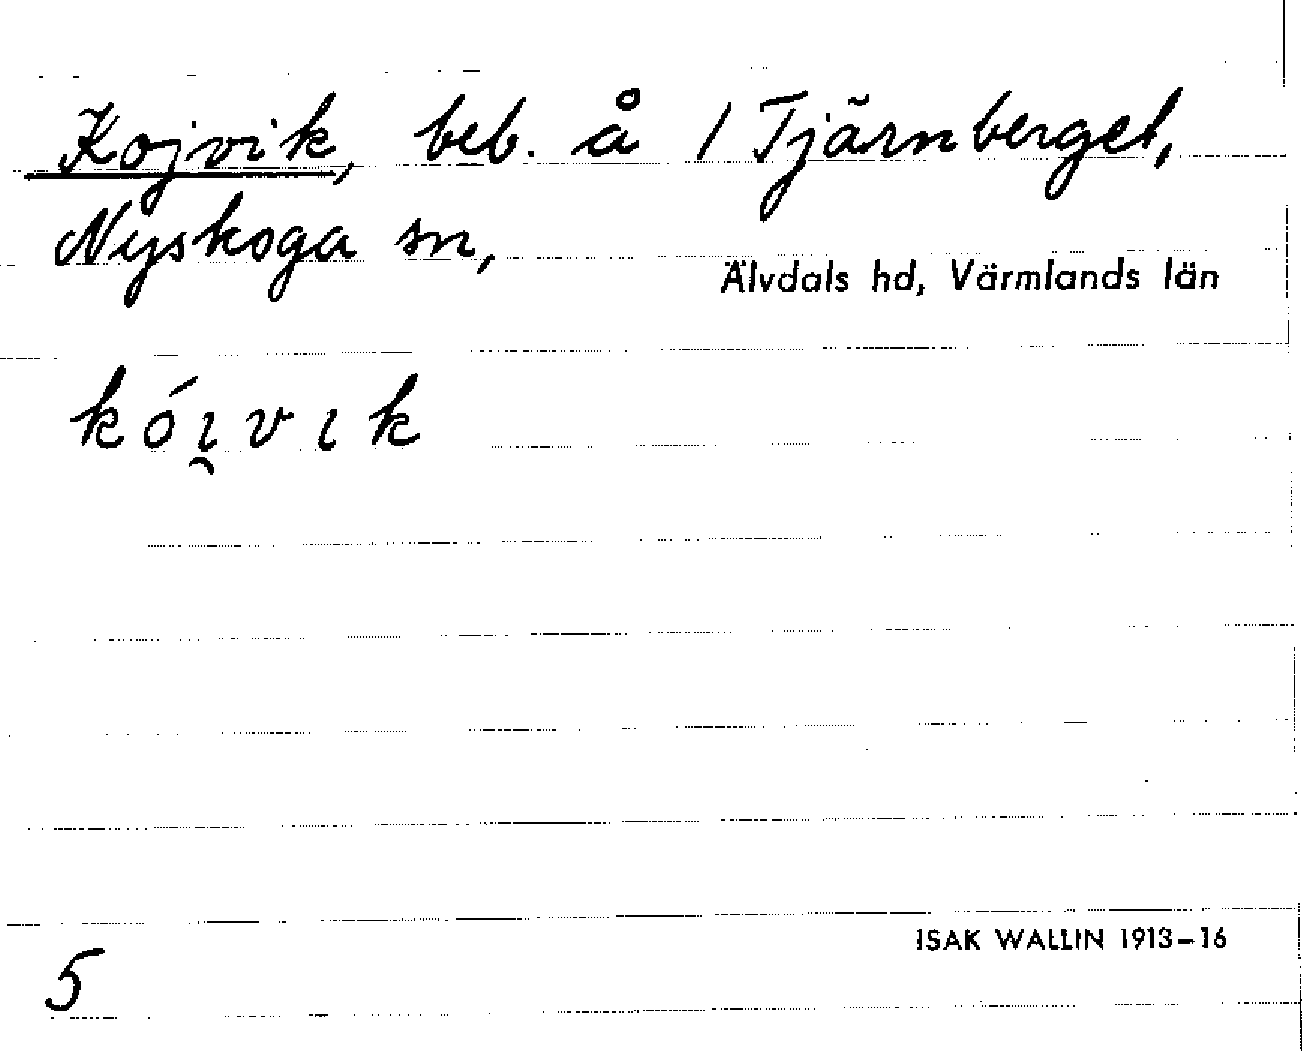 Kojvik, beb. å 1 Tjärnberget,
Nyskoga sn,
Älvdals hd, Värmlands län
kóı̯vık
ISAK WALLIN 1913–16
5